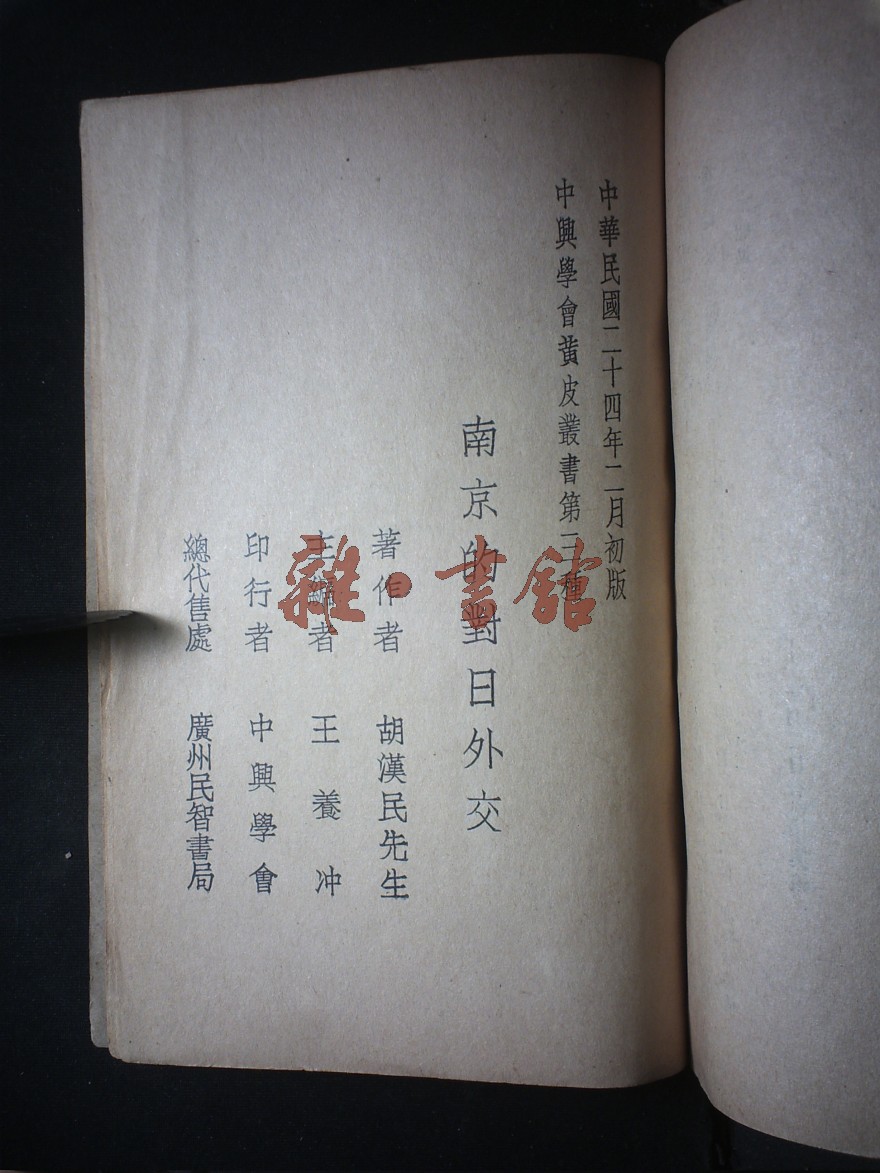 中華民國二十四年二月初版
中興學會黃皮叢書第三種
南京的對日外交
著作者 胡漢民先生
主編者 王養冲
印行者 中興學會
總代售處 廣州民智書局
雜·書館